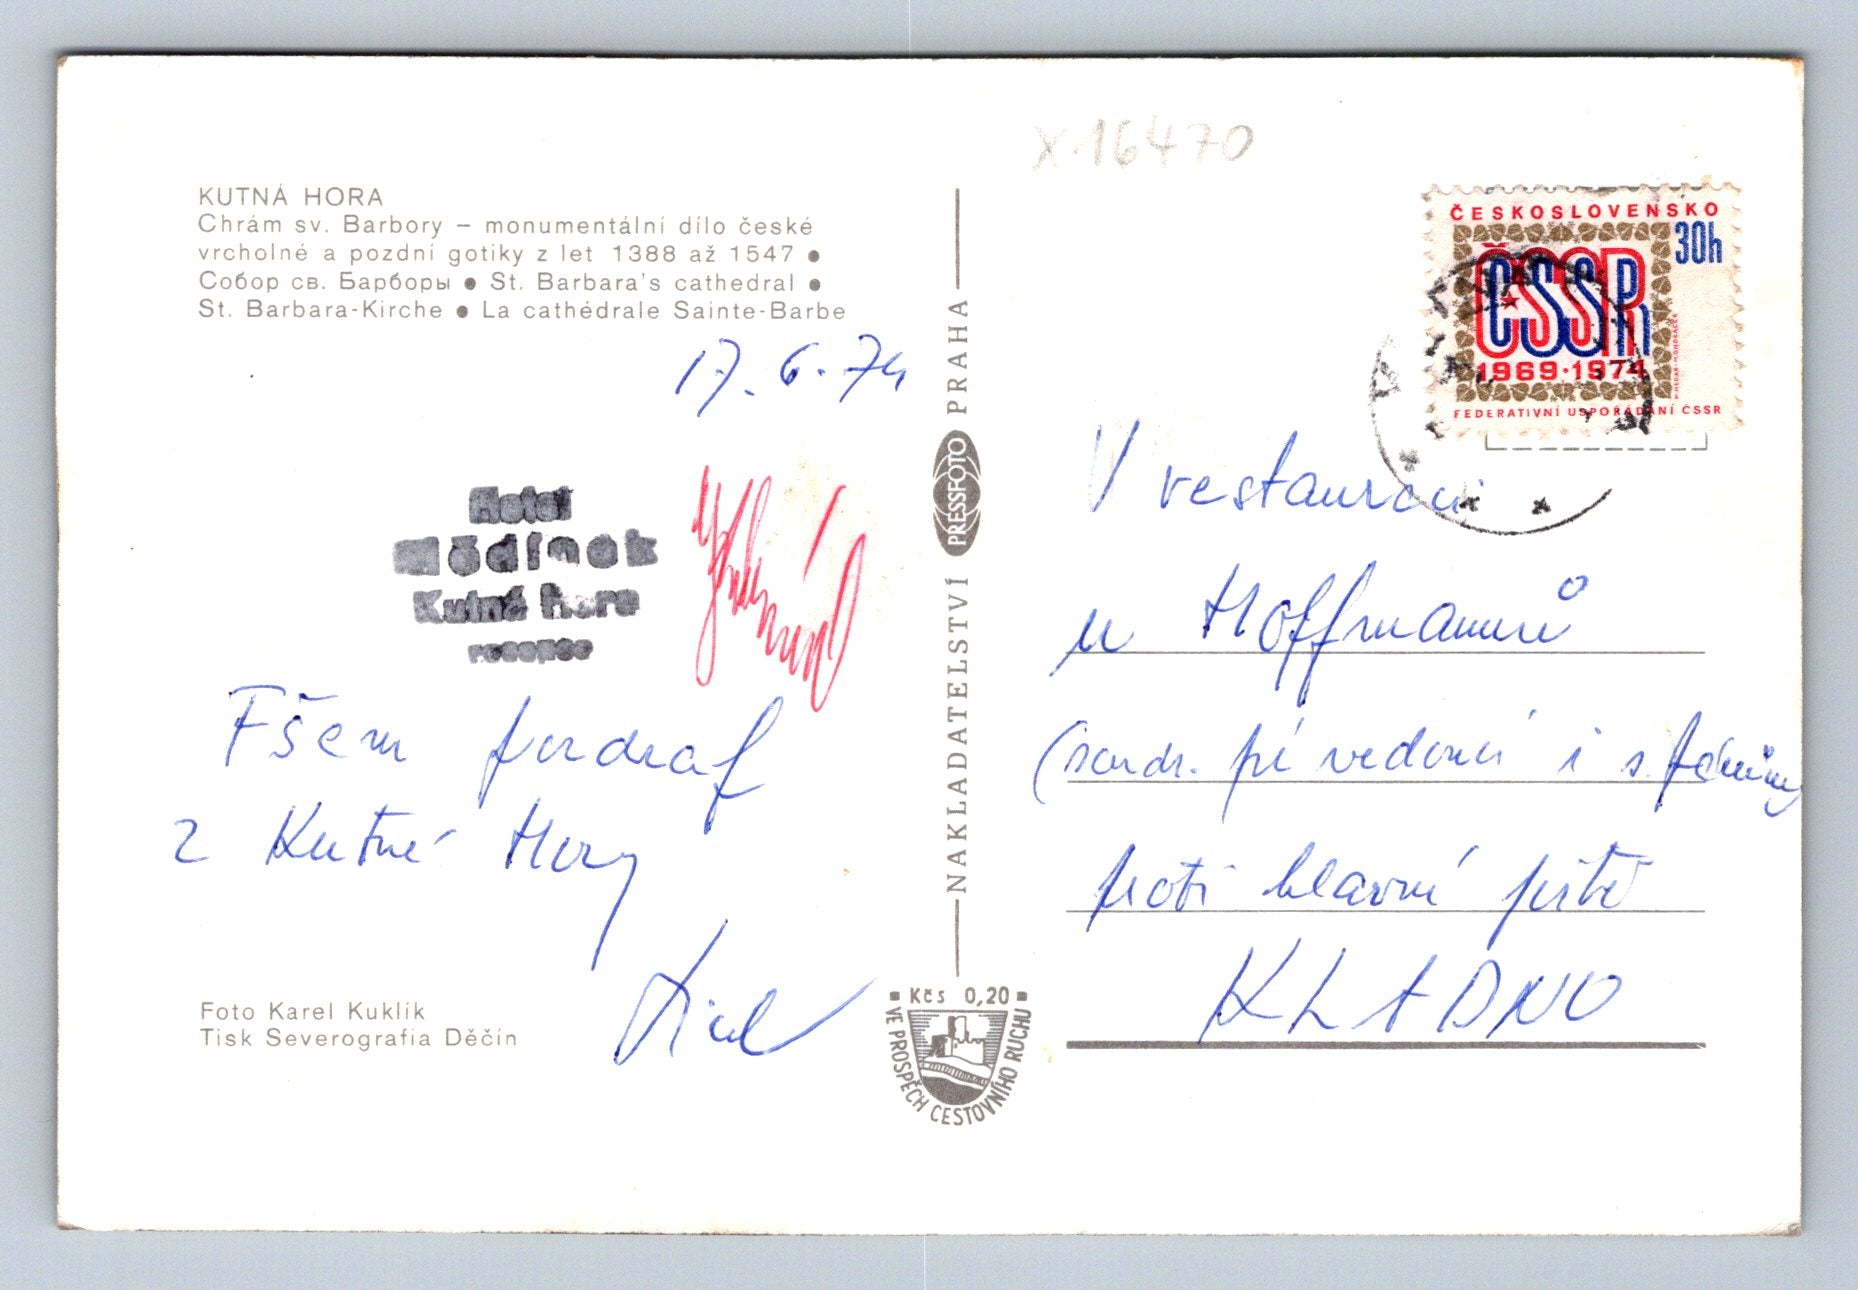 KUTNÁ HORA
Chrám sv. Barbory – monumentální dílo české
vrcholné a pozdní gotiky z let 1388 až 1547 ●
Собор св. Барборы ● St. Barbara's cathedral ●
St. Barbara-Kirche ● La cathédrale Sainte-Barbe
17. 6. 74
Hotel
Mědínek
Kutná Hora
Fšem pozdraf
z Kutné Hory
Foto Karel Kuklík
Tisk Severografia Děčín
NAKLADATELSTVÍ PRESSFOTO PRAHA
Kčs 0,20
VE PROSPĚCH CESTOVNÍHO RUCHU
X 16470
ČESKOSLOVENSKO
30h
ČSSR
1969·1974
FEDERATIVNÍ USPOŘÁDÁNÍ ČSSR
V restauraci
u Hoffmannů
vedoucí i s
proti hlavní poště
KLADNO